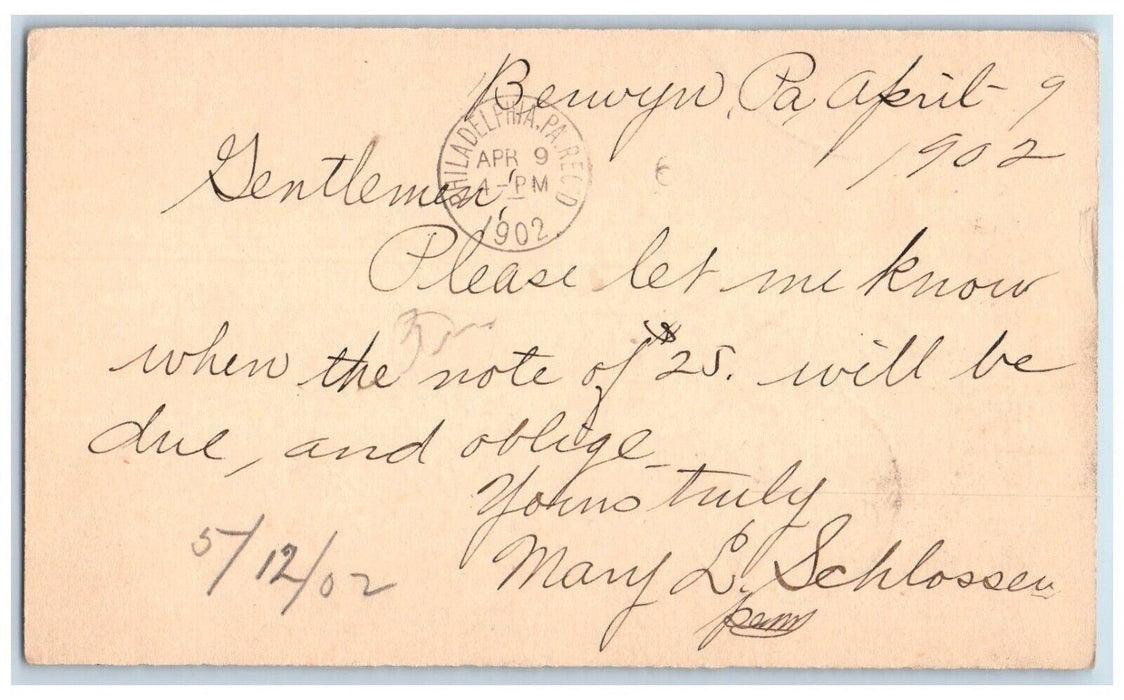 Berwyn, Pa, April 9
1902
PHILADELPHIA, PA. REC'D
APR 9
4-PM
1902
Gentlemen,
Please let me know
when the note of $25. will be
due, and oblige
Yours truly
Mary L. Schlosser
5/12/02